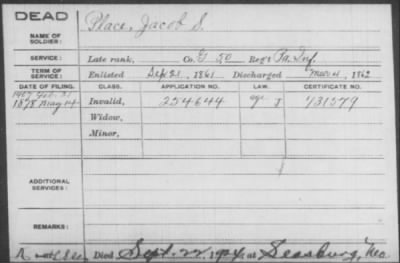 DEAD
NAME OF SOLDIER: Place, Jacob S.
SERVICE: Late rank, Co. G 50 Reg't Pa. Inf.
TERM OF SERVICE: Enlisted Sep 21, 1861 Discharged Mar 4, 1862
DATE OF FILING. CLASS. APPLICATION NO. LAW. CERTIFICATE NO.
1907
1878 May 14 Invalid, 254644 731579
Widow,
Minor,
ADDITIONAL SERVICES:
REMARKS:
Died Sept. 22, 1924 at Mo